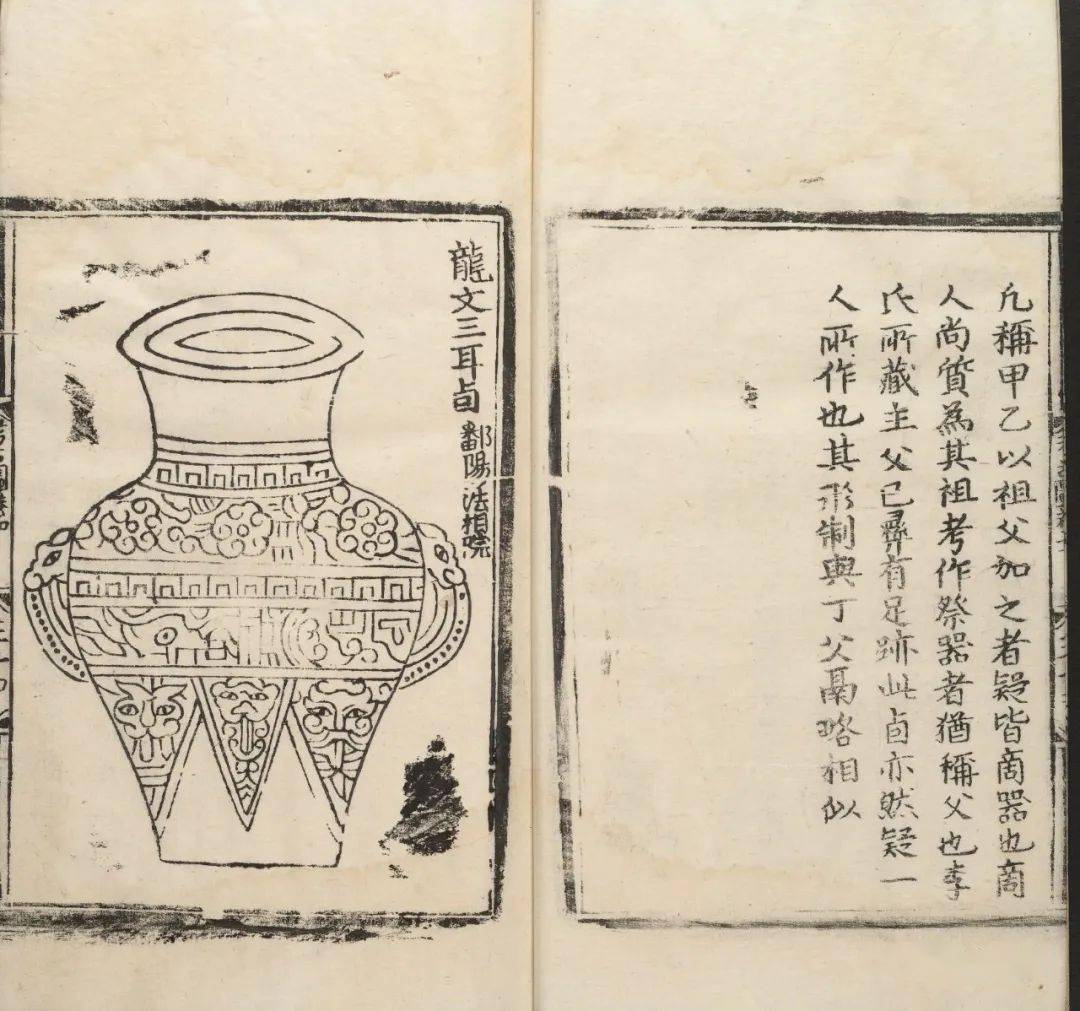 凡稱甲乙以祖父加之者疑皆商器也商
人尚質為其祖考作祭器者猶稱父也李
氏所藏主父己彝有足跡此卣亦然疑一
人所作也其形制與丁父鬲略相似
龍文三耳卣
鄱陽法相院